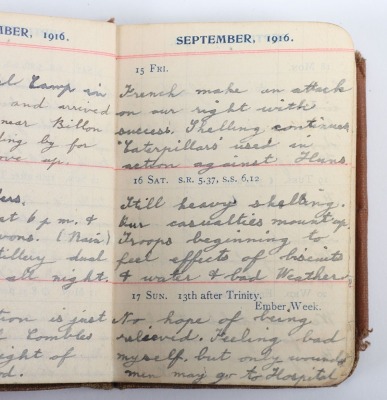 MBER, 1916.
Camp in
and arrived
near Billon
ing by for
ove up.
at 6 p.m. &
vons. (Rain)
tillery duel
all night.
tion is just
Combles
ight of
SEPTEMBER, 1916.
15 FRI.
French make an attack
on our right with
success. Shelling continues.
"Caterpillars" used in
action against Huns.
16 SAT. S.R. 5.37, S.S. 6.12
Still heavy shelling.
Our casualties mount up.
Troops beginning to
feel effects of biscuits
& water & bad Weather.
17 SUN. 13th after Trinity.
Ember Week.
No hope of being
relieved. Feeling bad
myself, but only wounded
men may go to Hospital